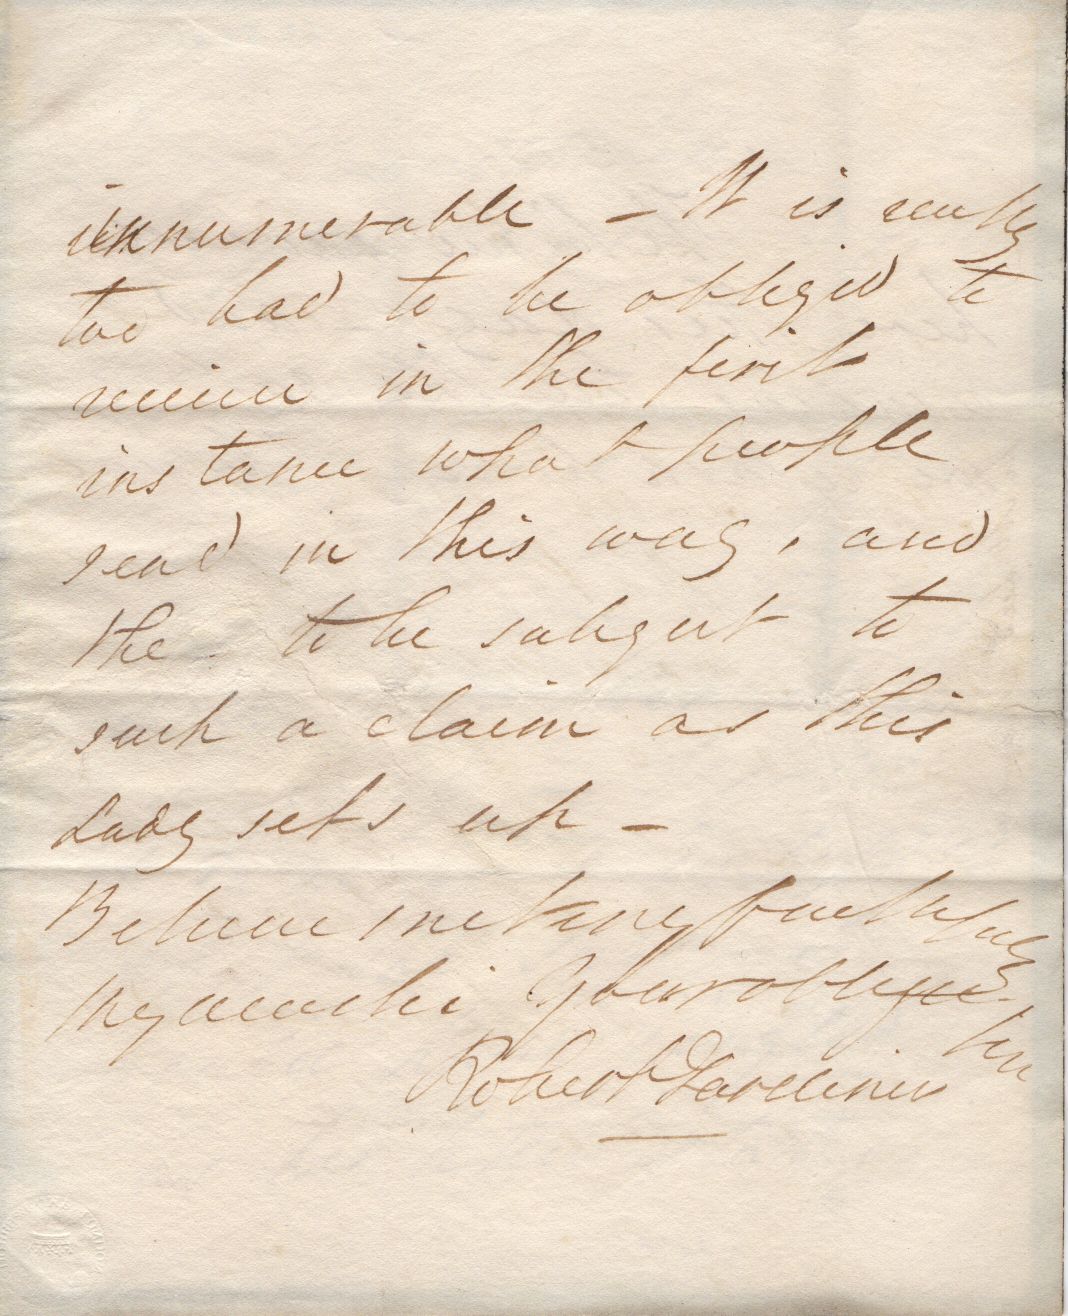 innumerable - It is really
too bad to be obliged to
receive in the first
instance what people
send in this way, and
the to be subject to
such a claim as this
Lady sets up -
Believe me to be very faithfully
My Your oblige
Robert Gardiner